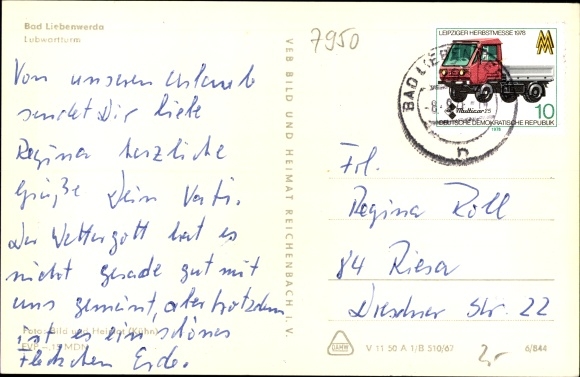 Bad Liebenwerda
Lubwartturm
Von unseren Urlaub
sendet Dir liebe
Regina herzliche
Grüße Dein Vati.
Der Wettergott hat es
nicht gerade gut mit
uns gemeint, aber trotzdem
ist es ein schönes
Fleckchen Erde.
Foto: Bild und Heimat (Kühn)
EVP -,15 MDN
VEB BILD UND HEIMAT REICHENBACH I. V.
7950
LEIPZIGER HERBSTMESSE 1978
MM
Multicar 25
10
DEUTSCHE DEMOKRATISCHE REPUBLIK
1978
BAD LIEBEN
n
Frl.
Regina Roll
84 Riesa
Dresdner Str. 22
V 11 50 A 1/B 510/67
6/844